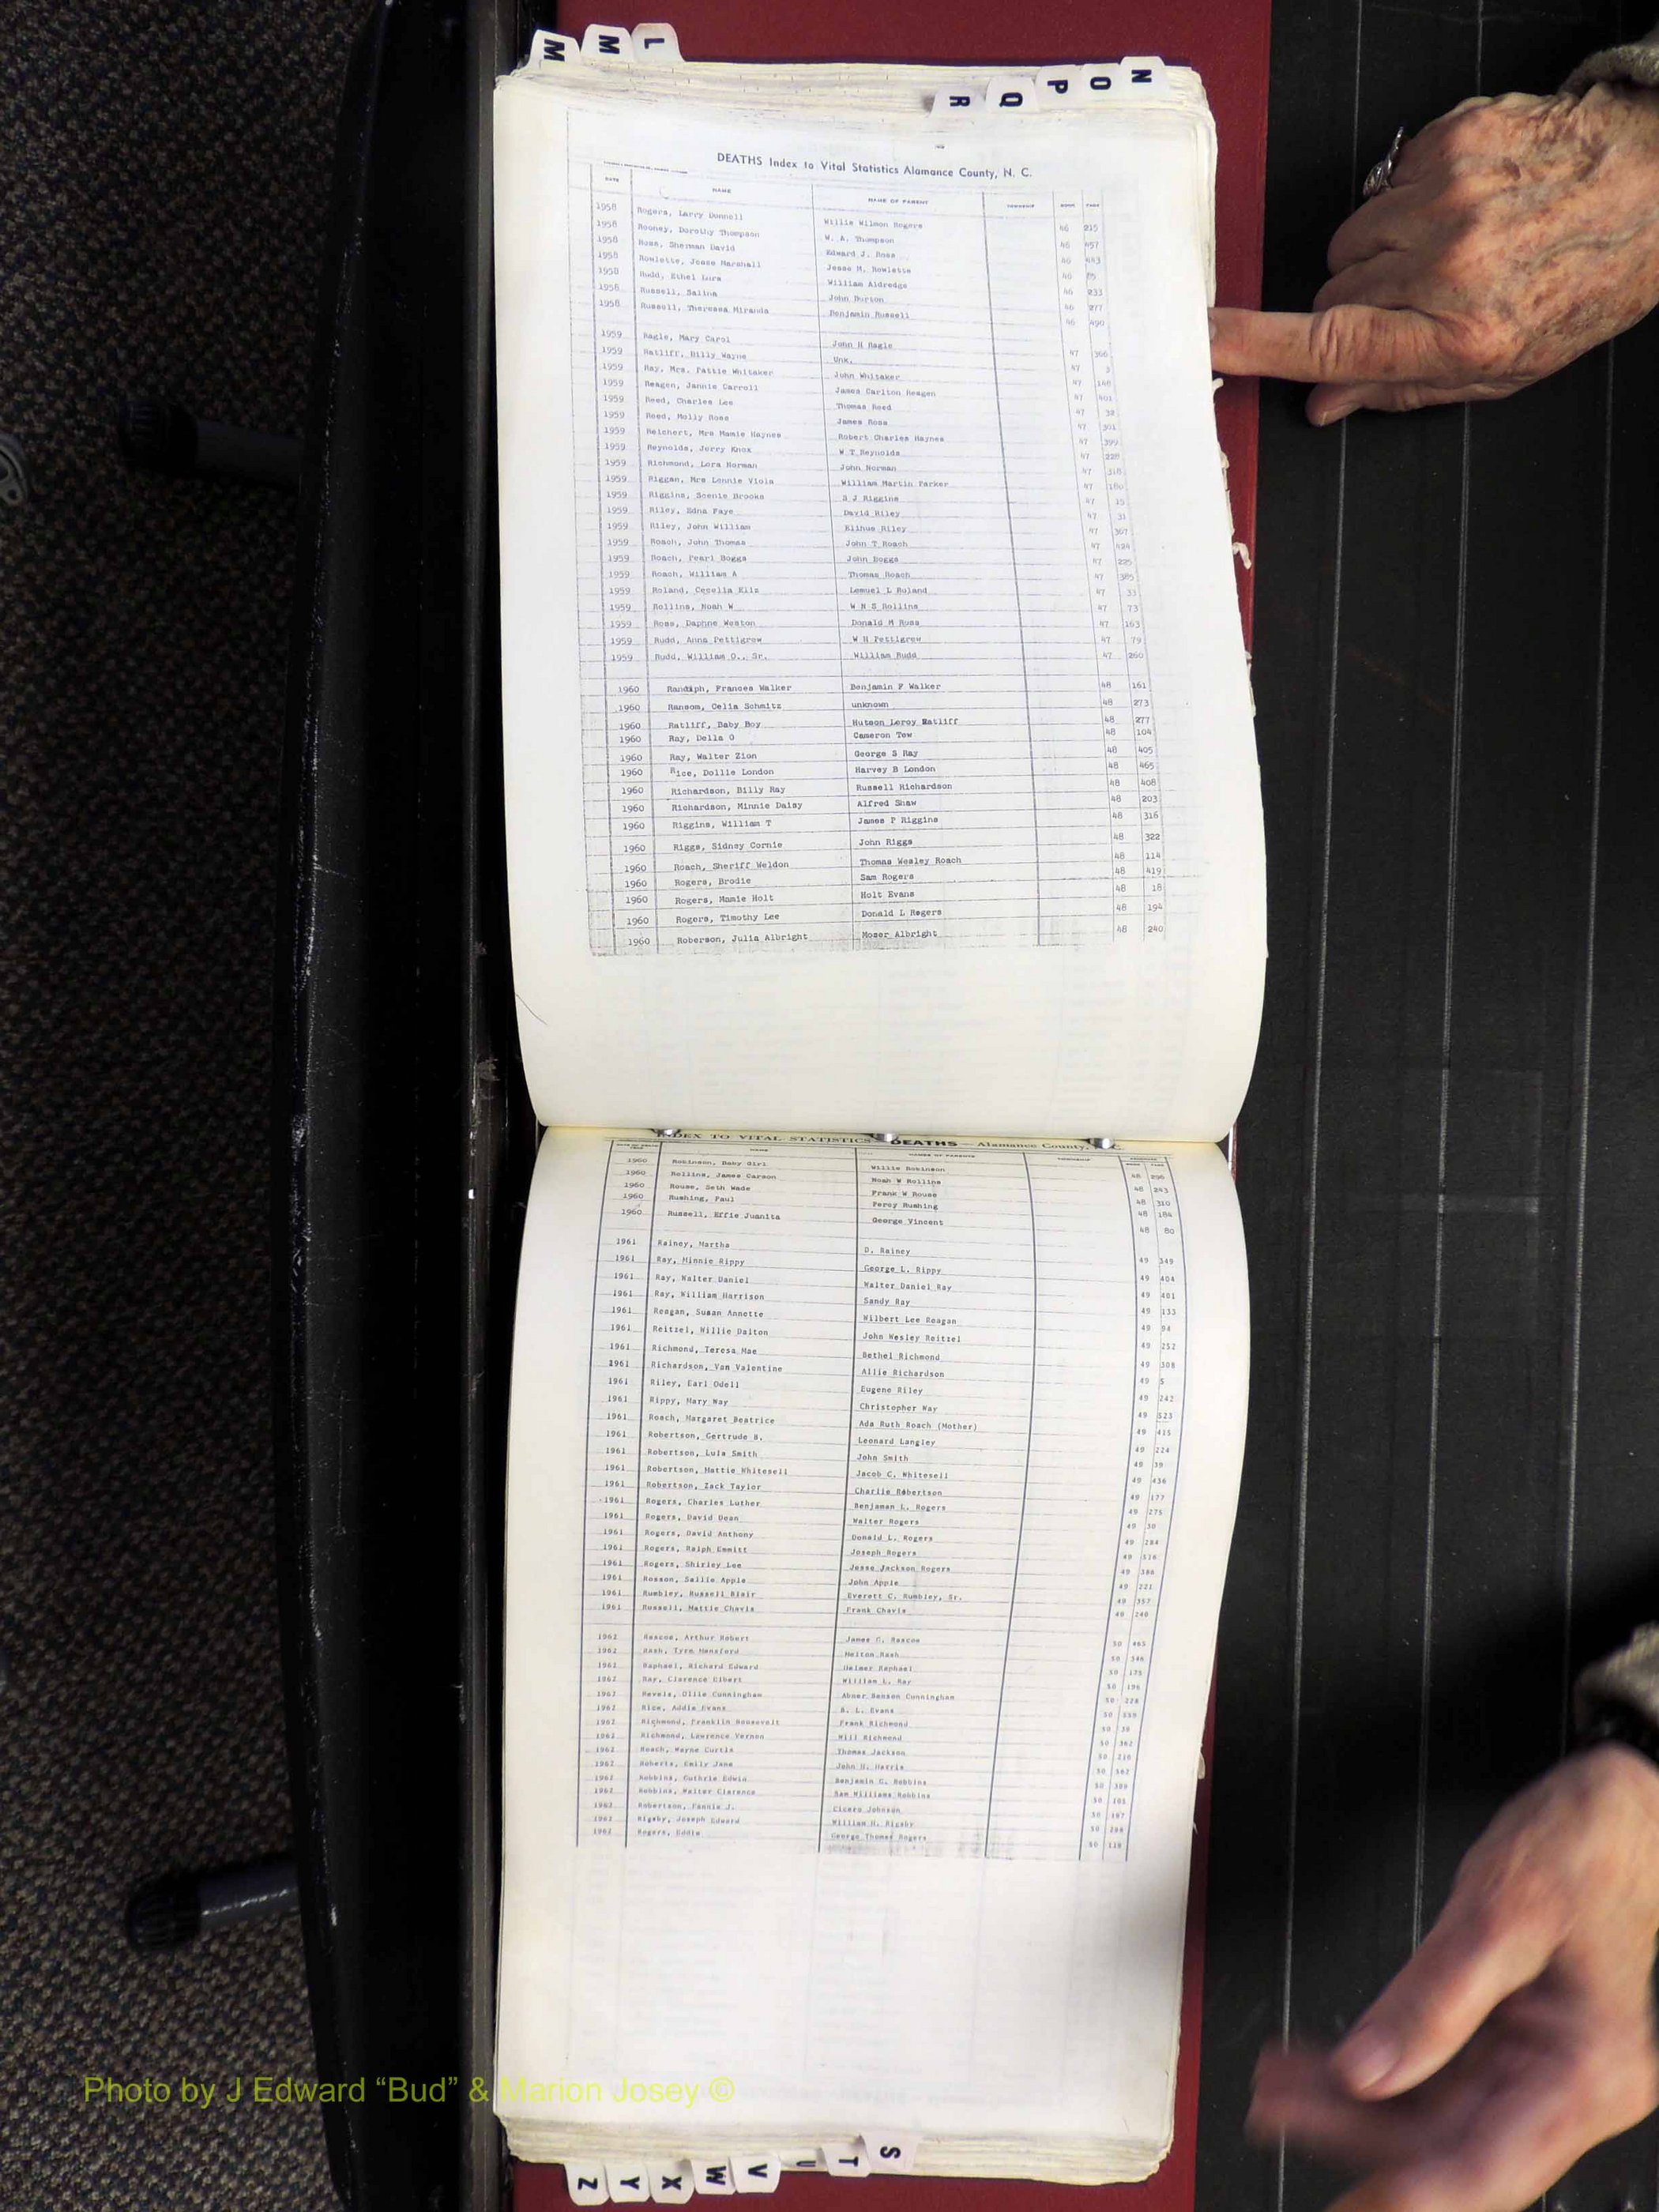 M M L
N O P Q R
DEATHS Index to Vital Statistics Alamance County, N. C.
DATE NAME NAME OF PARENT TOWNSHIP BOOK PAGE
1958 Rogers, Larry Donnell Willie Wilmon Rogers 46 215
1958 Rooney, Dorothy Thompson W. A. Thompson 46 457
1958 Ross, Sherman David Edward J. Ross 46 443
1958 Rowlette, Jesse Marshall Jesse M. Rowlette 46 85
1958 Rudd, Ethel Lura William Aldredge 46 233
1958 Russell, Salina John Burton 46 277
1958 Russell, Theressa Miranda Benjamin Russell 46 490
1959 Ragle, Mary Carol John H Ragle 47 306
1959 Ratliff, Billy Wayne Unk. 47 3
1959 Ray, Mrs. Pattie Whitaker John Whitaker 47 148
1959 Reagen, Jannie Carroll James Carlton Reagen 47 401
1959 Reed, Charles Lee Thomas Reed 47 38
1959 Reed, Molly Ross James Ross 47 301
1959 Reichert, Mrs Mamie Haynes Robert Charles Haynes 47 399
1959 Reynolds, Jerry Knox W T Reynolds 47 228
1959 Richmond, Lora Norman John Norman 47 318
1959 Riggan, Mrs Lonnie Viola William Martin Parker 47 180
1959 Riggins, Scenie Brooks S J Riggins 47 15
1959 Riley, Edna Faye David Riley 47 31
1959 Riley, John William Elihue Riley 47 367
1959 Roach, John Thomas John T Roach 47 424
1959 Roach, Pearl Boggs John Boggs 47 225
1959 Roach, William A Thomas Roach 47 385
1959 Roland, Cecelia Eliz Lemuel L Roland 47 33
1959 Rollins, Noah W W N S Rollins 47 73
1959 Ross, Daphne Weston Donald M Ross 47 163
1959 Rudd, Anna Pettigrew W H Pettigrew 47 79
1959 Rudd, William O., Sr. William Rudd 47 260
1960 Randlph, Frances Walker Benjamin F Walker 48 161
1960 Ransom, Celia Schmitz unknown 48 273
1960 Ratliff, Baby Boy Hutson Leroy Ratliff 48 277
1960 Ray, Della O Cameron Tew 48 104
1960 Ray, Walter Zion George S Ray 48 405
1960 Rice, Dollie London Harvey B London 48 465
1960 Richardson, Billy Ray Russell Richardson 48 408
1960 Richardson, Minnie Daisy Alfred Shaw 48 203
1960 Riggins, William T James P Riggins 48 316
1960 Riggs, Sidney Cornie John Riggs 48 322
1960 Roach, Sheriff Weldon Thomas Wesley Roach 48 114
1960 Rogers, Brodie Sam Rogers 48 419
1960 Rogers, Mamie Holt Holt Evans 48 18
1960 Rogers, Timothy Lee Donald L Rogers 48 194
1960 Roberson, Julia Albright Moser Albright 48 240
INDEX TO VITAL STATISTICS DEATHS — Alamance County, N. C.
NAME NAMES OF PARENTS TOWNSHIP
1960 Robinson, Baby Girl Willie Robinson 48 296
1960 Rollins, James Carson Noah W Rollins 48 243
1960 Rouse, Seth Wade Frank W Rouse 48 310
1960 Rushing, Paul Percy Rushing 48 184
1960 Russell, Effie Juanita George Vincent 48 80
1961 Rainey, Martha D. Rainey 49 349
1961 Ray, Minnie Rippy George L. Rippy 49 404
1961 Ray, Walter Daniel Walter Daniel Ray 49 401
1961 Ray, William Harrison Sandy Ray 49 133
1961 Reagan, Susan Annette Wilbert Lee Reagan 49 94
1961 Reitzel, Willie Dalton John Wesley Reitzel 49 252
1961 Richmond, Teresa Mae Bethel Richmond 49 308
1961 Richardson, Van Valentine Allie Richardson 49 5
1961 Riley, Earl Odell Eugene Riley 49 242
1961 Rippy, Mary Way Christopher Way 49 523
1961 Roach, Margaret Beatrice Ada Ruth Roach (Mother) 49 415
1961 Robertson, Gertrude B. Leonard Langley 49 224
1961 Robertson, Lula Smith John Smith 49 39
1961 Robertson, Mattie Whitesell Jacob C. Whitesell 49 436
1961 Robertson, Zack Taylor Charlie Robertson 49 177
1961 Rogers, Charles Luther Benjaman L. Rogers 49 275
1961 Rogers, David Dean Walter Rogers 49 30
1961 Rogers, David Anthony Donald L. Rogers 49 284
1961 Rogers, Ralph Emmitt Joseph Rogers 49 516
1961 Rogers, Shirley Lee Jesse Jackson Rogers 49 386
1961 Rosson, Sallie Apple John Apple 49 221
1961 Rumbley, Russell Blair Everett C. Rumbley, Sr. 49 357
1961 Russell, Mattie Chavis Frank Chavis 49 240
1962 Rascoe, Arthur Robert James G. Rascoe 50 465
1962 Rash, Tyra Hansford Melton Rash 50 346
1962 Raphael, Richard Edward Raphael 50 175
1962 Ray, Clarence Elbert William L. Ray 50 196
1962 Revels, Ollie Cunningham Abner Benson Cunningham 50 228
1962 Rice, Addie Evans B. L. Evans 50 559
1962 Richmond, Franklin Roosevelt Frank Richmond 50 38
1962 Richmond, Lawrence Vernon Will Richmond 50 362
1962 Roach, Wayne Curtis Thomas Jackson 50 218
1962 Roberts, Emily Jane John H. Harris 50 562
1962 Robbins, Guthrie Edwin Benjamin C. Robbins 50 389
1962 Robbins, Walter Clarence Sam Williams Robbins 50 105
1962 Robertson, Fannie J. Cicero Johnson 50 187
1962 Rigsby, Joseph Edward William H. Rigsby 50 298
1962 Rogers, Eddie George Thomas Rogers 50 118
Photo by J Edward “Bud” & Marion Josey ©
Z Y X W V U T S